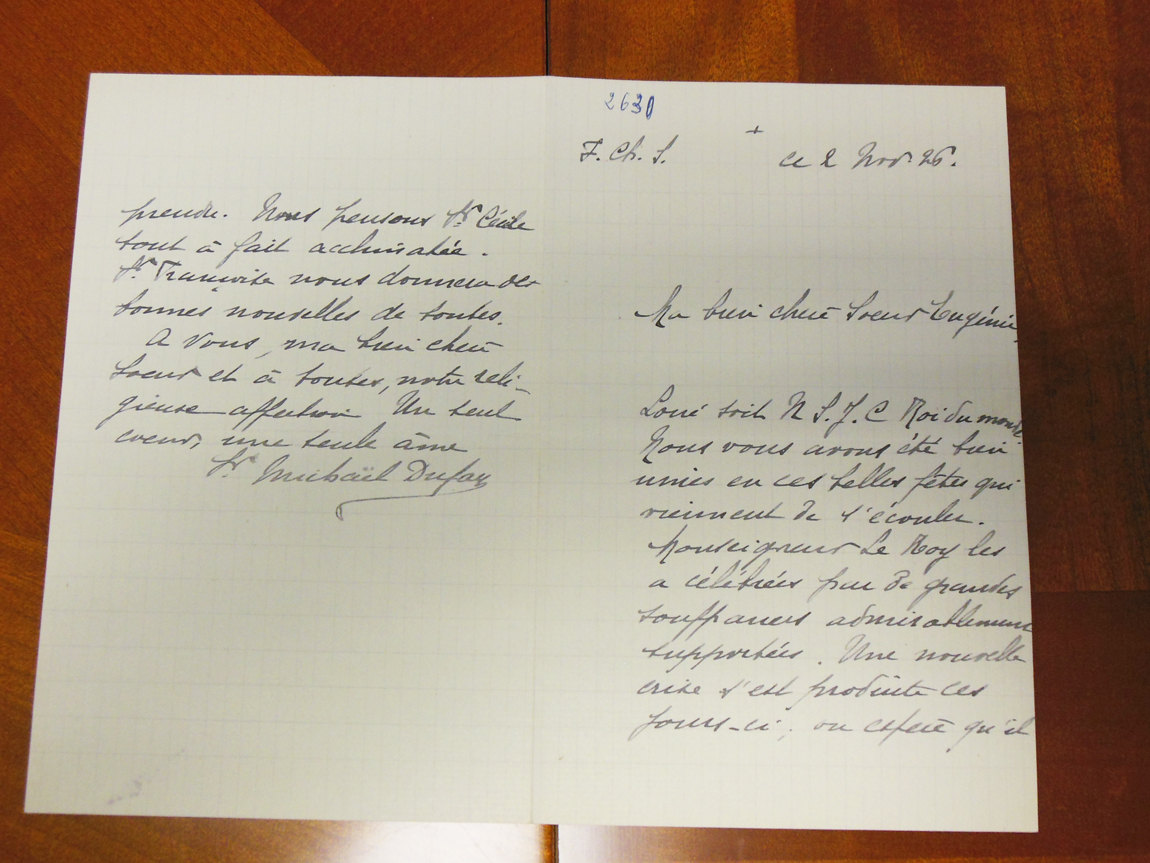 2630
+
F. Ch. S. ce 2 Nov. 26.
Ma bien chère Soeur Eugénie,
Loué soit N S. J. C Roi du monde.
Nous vous avons été bien
unies en ces belles fêtes qui
viennent de s'écouler.
Monseigneur Le Roy les
a célébrées par de grandes
souffrances admirablement
supportées. Une nouvelle
crise s'est produite ces
jours-ci; on espère qu'il
prendre. Nous pensons Sr. Cécile
tout à fait acclimatée.
Sr. nous donnera des
bonnes nouvelles de toutes.
A Vous, ma bien chère
Soeur et à toutes, notre reli-
gieuse affection Un seul
coeur, une seule âme
Sr. Michaël Dufay